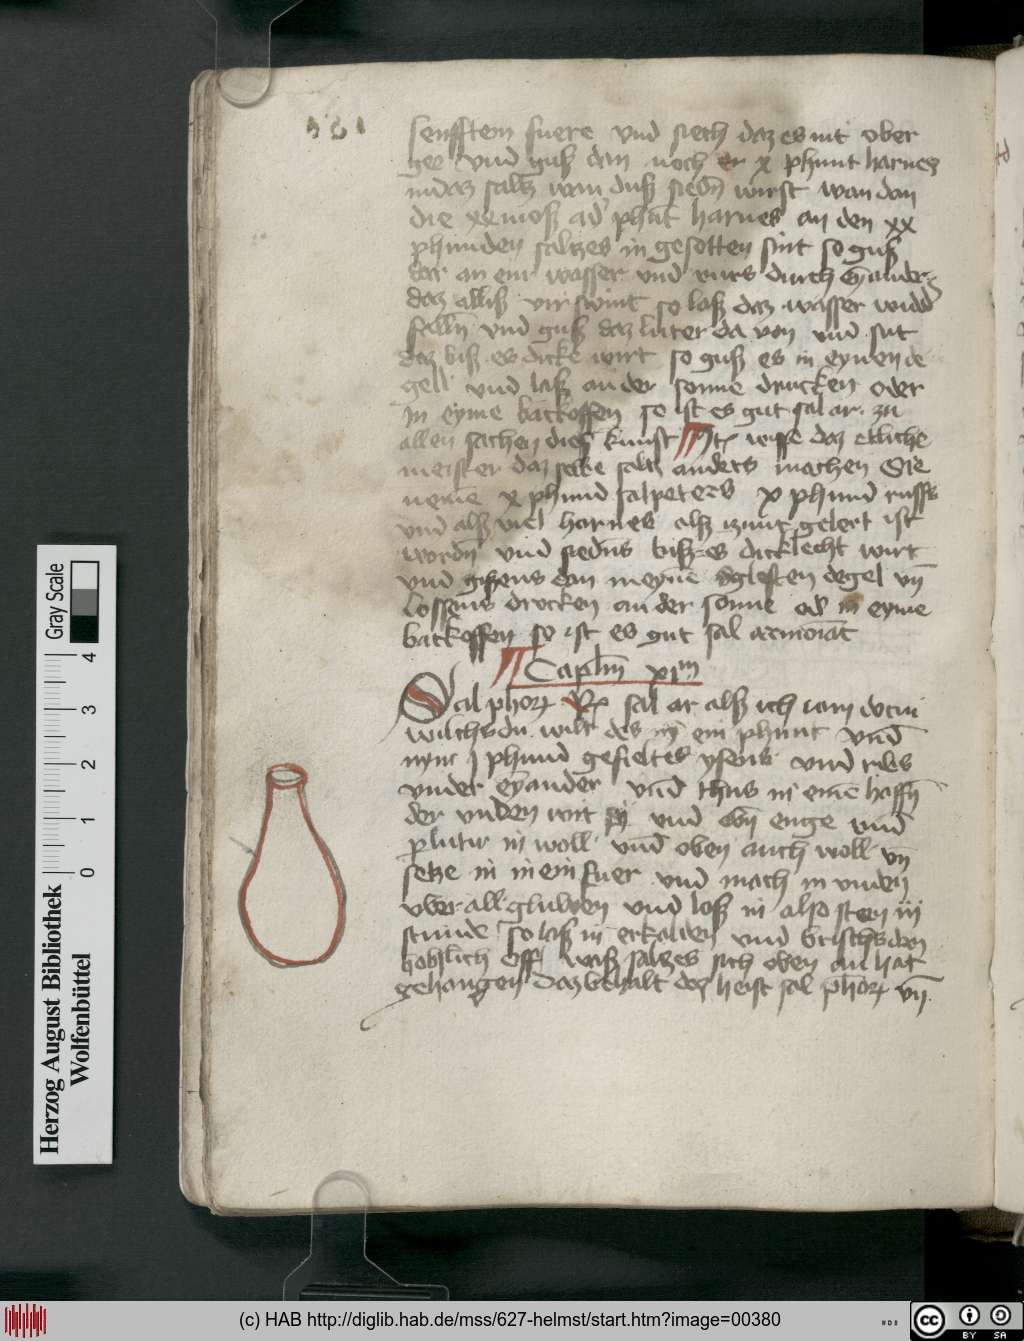 181
senfftem fuere vnd siech daz es nit vber
gee vnd guß dan noch er x phunt harnes
in daz saltz wan duß siedn wirst wan dan
die xx moß ad phūt harnes an den xx
phunden saltzes in gesotten sint so guß
dar an ein wasser vnd rurs durch
daz alliß so laß daz wasser widd
falln vnd guß daz luter da von vnd sut
daz biß es dicke wirt so guß es in eynen de
gell vnd laß an der sonne drucken oder
in eyme backoffen so ist es gut sal ar. zu
allen sachen dieß kunst Itē wisse daz etliche
meister daz selbe saltz anders machen Sie
nemē x phund salpeters x phund russs
vnd alß viel harnes alß gelert ist
wordn vnd siedns biß es dicklecht wirt
vnd gissens dan in eynē glesten degel vn̄
lossens drocken an der sonne od in eyme
backoffen so ist es gut sal armoniac
Caplm xim
Sal phor Rx sal ar alß ich
wilchs du wilt des nȳ ein phunt vnd
nym j phund gefieltes ysens vnd ribs
vnder eynander vnd thus in einē haffn̄
der vnden wit sy vnd obn̄ enge vnd
lutir in woll vnd oben auch woll vn̄
setze in in ein fuer vnd mach in vnden
vber all gluwen vnd loß in also steen iij
stunde so laß in erkalden vnd brichs dan
hobslich off waß saltzes sich oben an hat
gehangen daz behalt daz heist sal phor vn̄
Gray Scale
0 1 2 3 4
Herzog August Bibliothek
Wolfenbüttel
(c) HAB http://diglib.hab.de/mss/627-helmst/start.htm?image=00380
cc BY SA